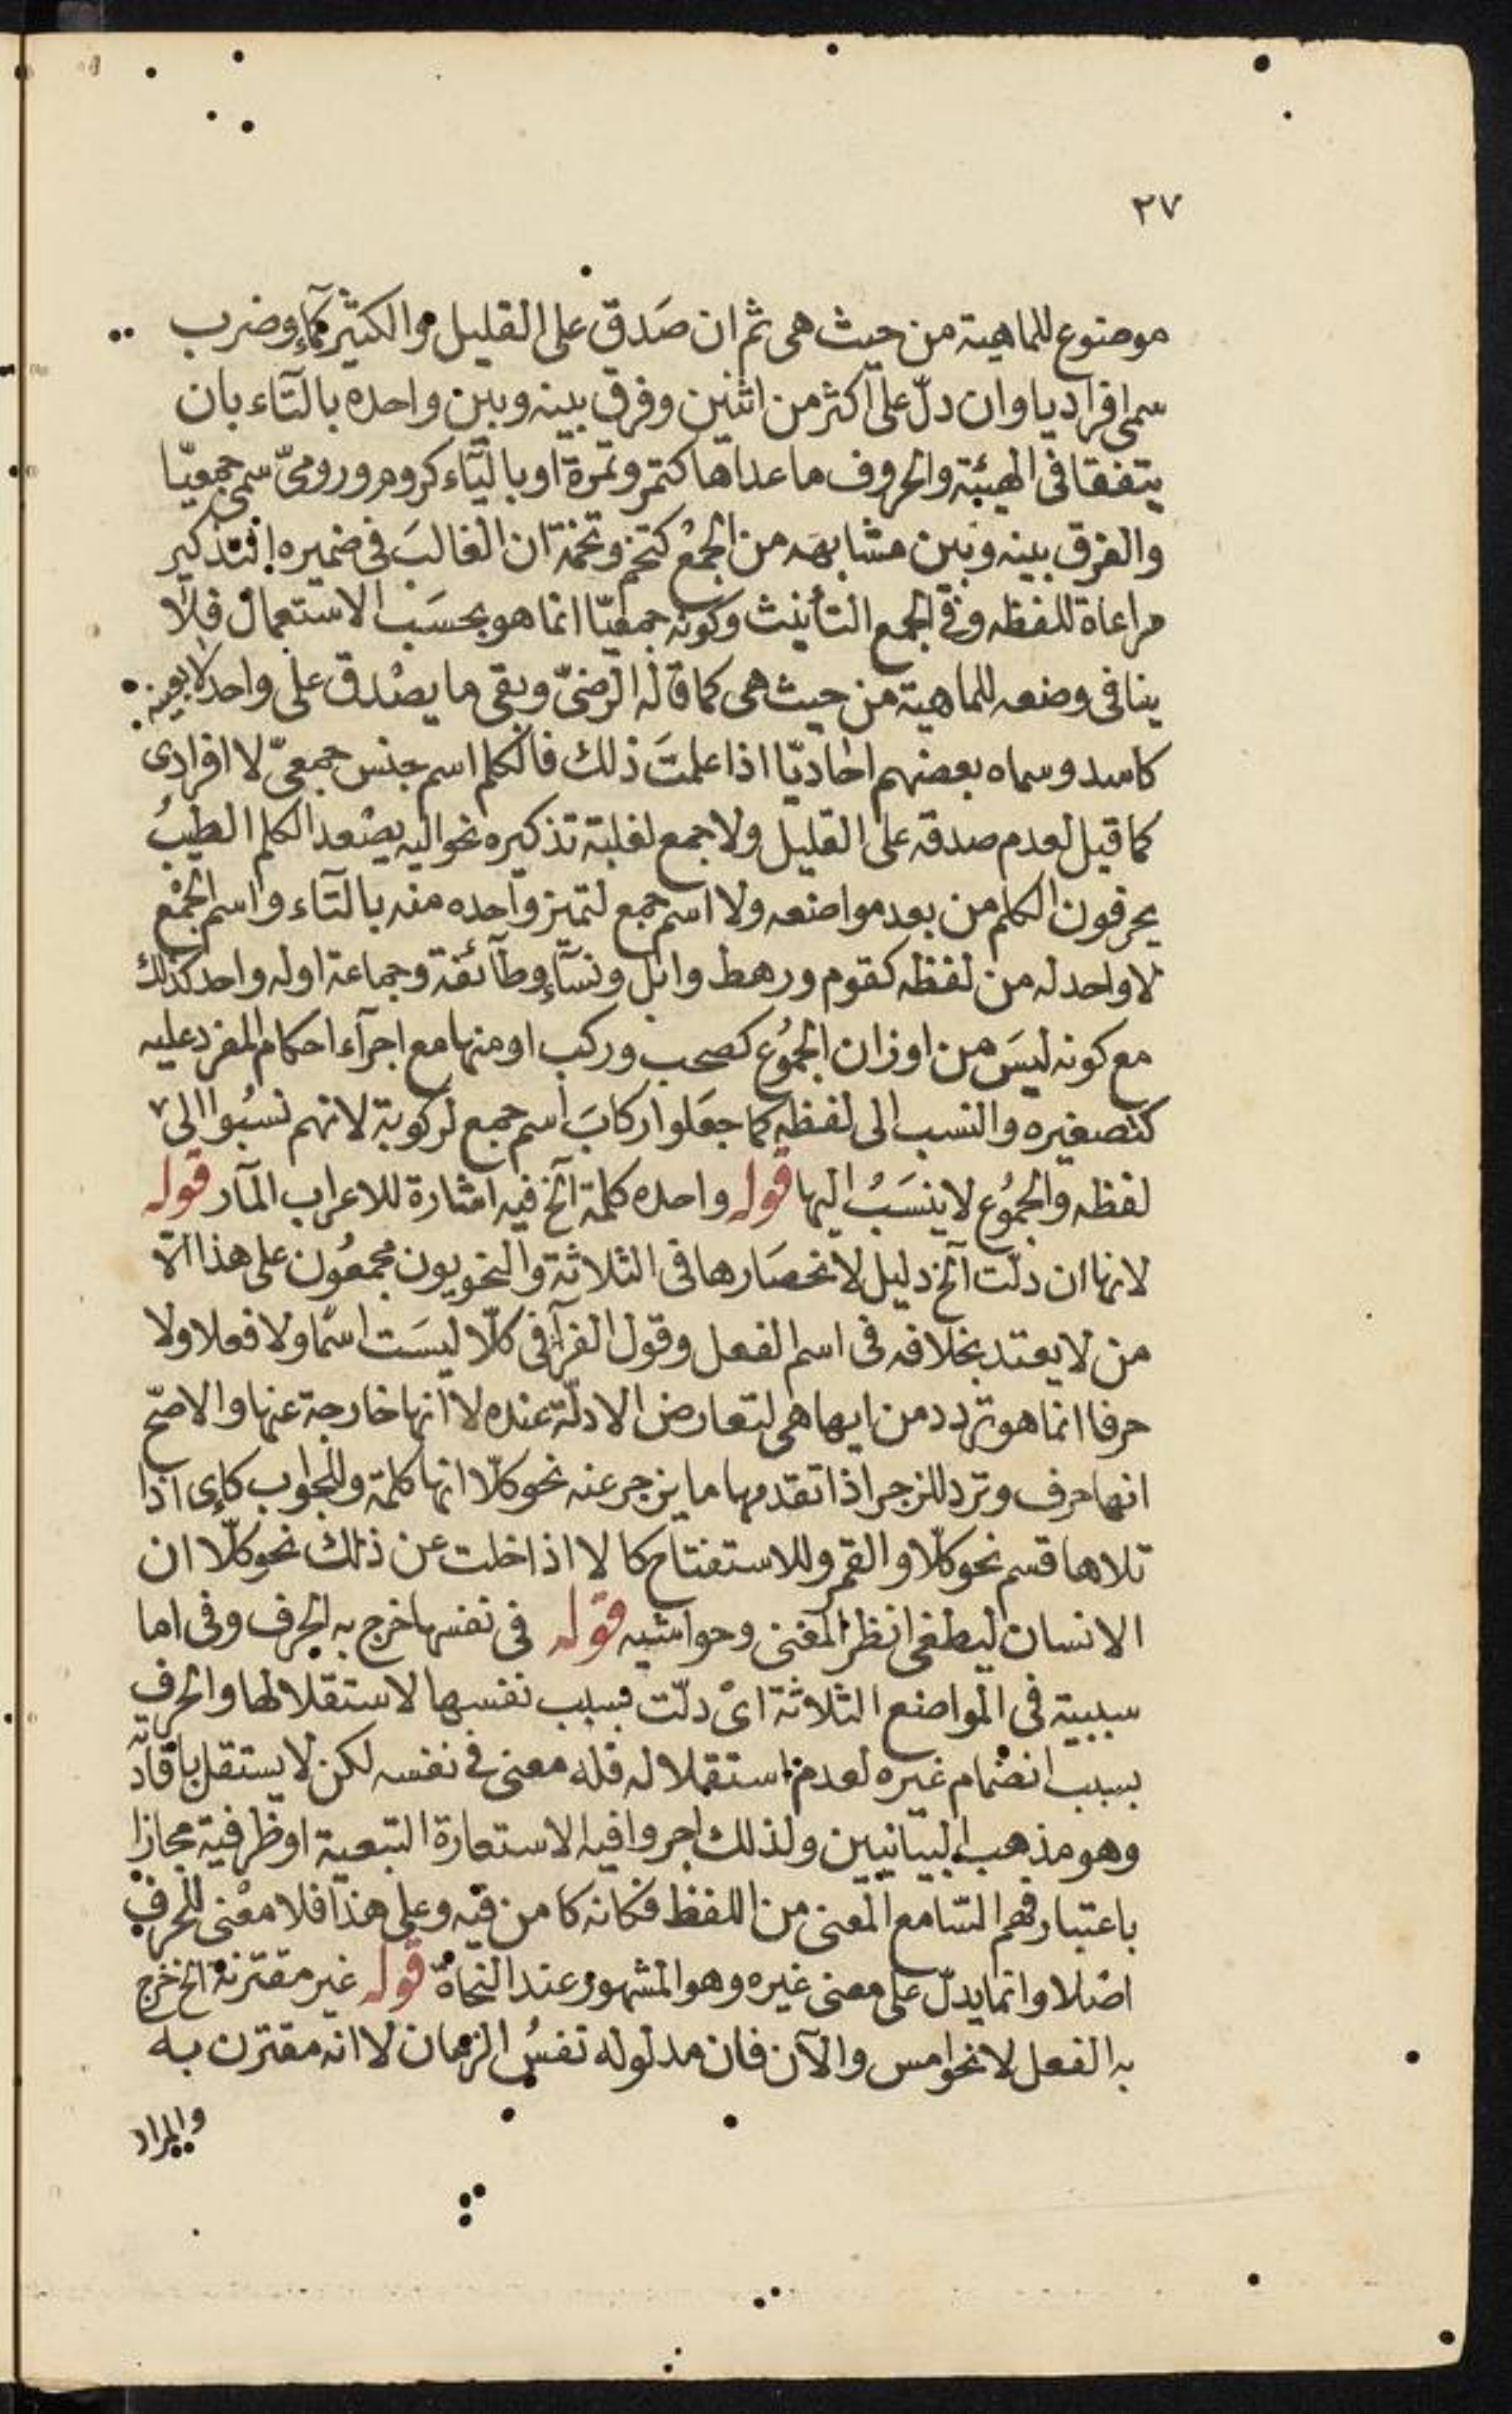 ٢٧
موضوع للماهية من حيث هى ثم ان صَدق على القليل والكثير كمآء وضرب
سمى افراديا وان دلّ على اكثر من اثنين وفرق بينه وبين واحده بالتآء بان
يتفقا فى الهيئة والحروف ما عداها كتمر وتمرة او باليآء كروم ورومىّ سمى جمعيّا
والفرق بينه وبين مشابهه من الجمع كتخم وتخمة ان الغالبَ فى ضميره التذكير
مراعاة للفظه وفى الجمع التأنيث وكونه جمعيّا انما هو بحسَب الاستعمال فلا
ينافى وضعه للماهية من حيث هى كما قاله الرضىّ وبقى ما يصْدق على واحد لا بعينه
كاسد وسماه بعضهم احاديّا اذا علمتَ ذلك فالكلم اسم جنس جمعىّ لا افرادى
كما قيل لعدم صدقه على القليل ولا جمع لغلبة تذكيره نحو اليه يصْعد الكلم الطيبُ
يحرفون الكلم من بعد مواضعه ولا اسم جمع لتميز واحده منه بالتآء واسم الجمْع
لا واحد له من لفظه كقوم ورهط وابل ونسآء وطآئفة وجماعة او له واحد كذلك
مع كونه ليسَ من اوزان الجموُع كصحب وركب او منها مع اجرآء احكام المفرد عليه
كتصغيره والنسب الى لفظه كما جعَلوا ركابَ اسم جمع لركوبة لانهم نسبُوا الى
لفظه والجموُع لا ينسَبُ اليها قوله واحده كلمة آلخ فيه اشارة للاعراب المآر قوله
لانها ان دلّت آلخ دليل لانحصَارها فى الثلاثة والنحويون مجمعُون على هذا الّا
من لا يعتد بخلافه فى اسم الفعل وقول الفرآء فى كلّا ليسَت اسمًا ولا فعلا ولا
حرفا انما هو تردد من ايها هى لتعارض الادلّة عنده لا انها خارجة عنها والاصحّ
انها حرف وترد للزجر اذا تقدمها ما يزجر عنه نحو كلّا انها كلمة وللجواب كاى اذا
تلاها قسم نحو كلّا والقمر وللاستفتاح كالا اذا خلت عن ذلك نحو كلّا ان
الانسان ليطغى انظر المغنى وحواشيه قوله فى نفسها خرج به الحرف وفى اما
سببية فى المواضع الثلاثة اىْ دلّت بسبب نفسها لاستقلالها والحرف
بسبب انضمام غيره لعدم استقلاله فله معنى فى نفسه لكن لا يستقل بافآدته
وهو مذهب البيانيين ولذلك اجروا فيه الاستعارة التبعية او ظرفية مجازا
باعتبار فهم السّامع المعنى من اللفظ فكانه كامن فيه وعلى هذا فلا معْنى للحرف
اصْلا وانما يدلّ على معنى غيره وهو المشهور عند النحاة قوله غير مقترنة الخ خرج
به الفعل لا نحو امس والآن فان مدلوله نفسُ الزمان لا انه مقترن به
والمراد